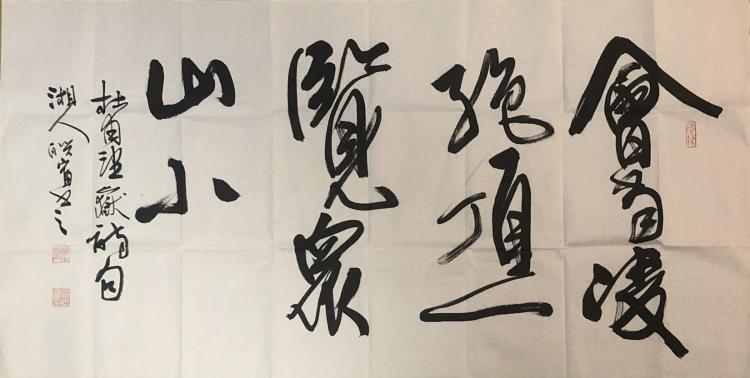 會當凌
絕頂一
覽眾
山小
杜甫望嶽詩句
湘人書之